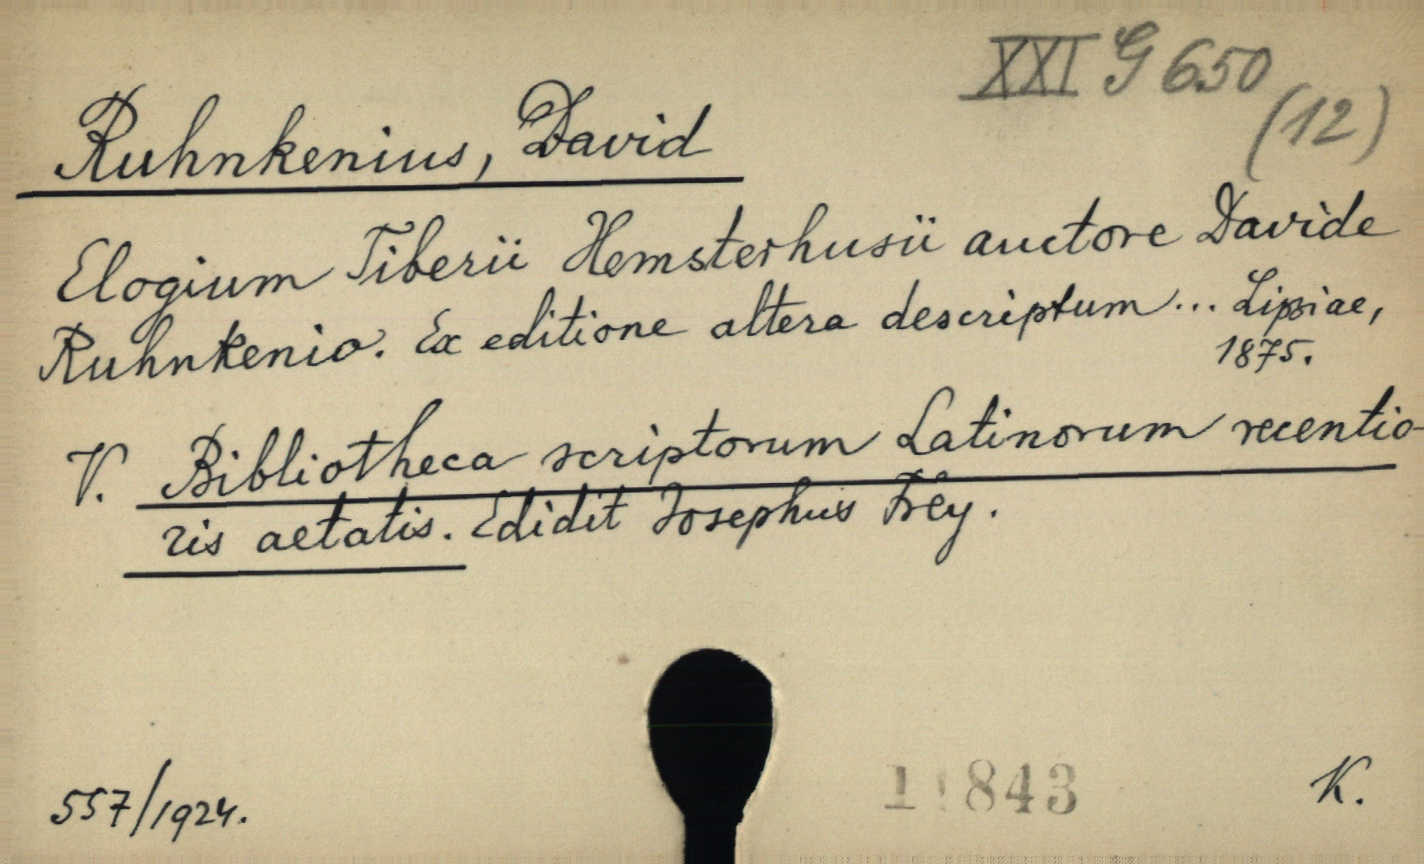 XXI G 650
(12)
Ruhnkenius, David
Elogium Tiberii Hemsterhusii auctore Davide
Ruhnkenio. Ex editione altera descriptum... Lipsiae,
1875.
V. Bibliotheca scriptorum Latinorum recentio-
ris aetatis. Edidit Josephus Frey.
557/1924.
843
K.